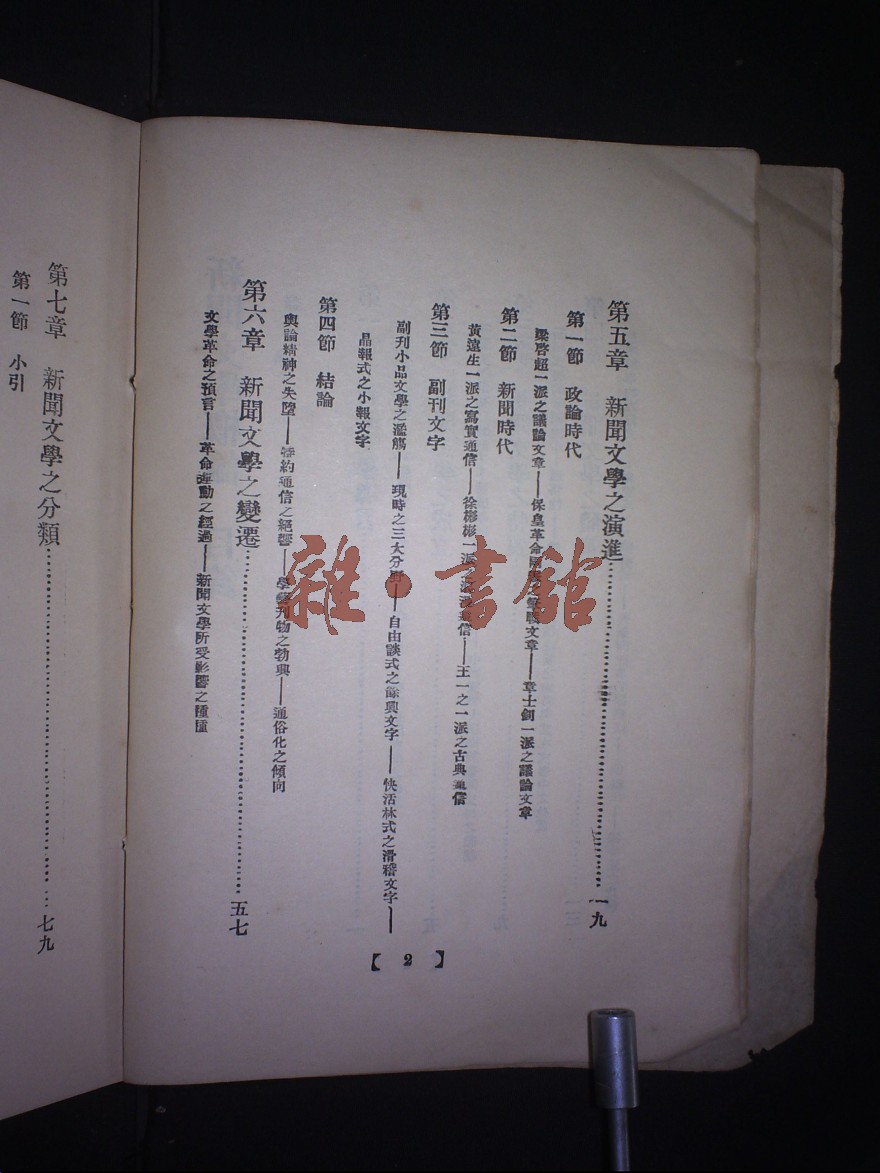 第五章　新聞文學之演進……一九
第一節　政論時代
梁啓超一派之議論文章——保皇革命文章——章士釗一派之議論文章
第二節　新聞時代
黃遠生一派之寫實通信——徐彬彬一派之通信——王一之一派之古典通信
第三節　副刊文字
副刊小品文學之濫觴——現時之三大分——自由談式之餘興文字——快活林式之滑稽文字——
晶報式之小報文字
第四節　結論
輿論精神之失墮——特約通信之絕響——學刊物之勃興——通俗化之傾向
第六章　新聞文學之變遷……五七
文學革命之預言——革命運動之經過——新聞文學所受影響之種種
【2】
第七章　新聞文學之分類……七九
第一節　小引
雜·書館